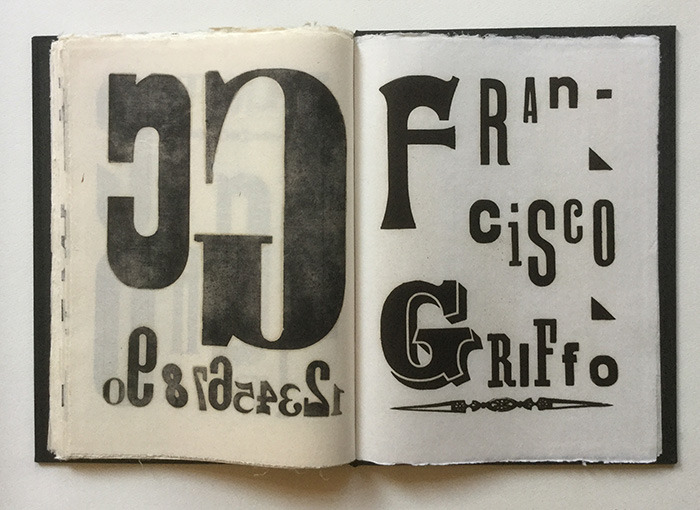 GC
1234567890
FRAn-
ciSco
GRIFfo